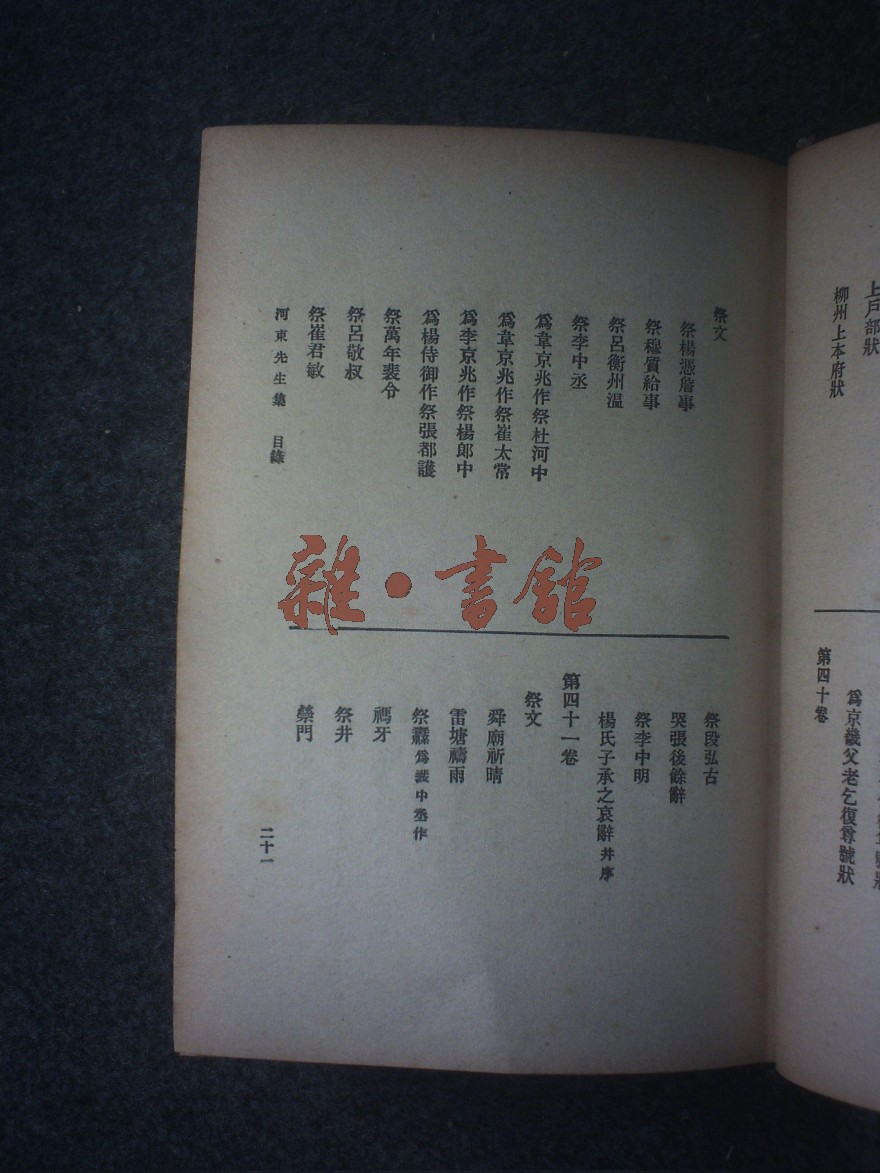 上戶部狀
柳州上本府狀
第四十卷
爲京畿父老乞復尊號狀
祭文
祭楊憑詹事
祭穆質給事
祭呂衡州溫
祭李中丞
爲韋京兆作祭杜河中
爲韋京兆作祭崔太常
爲李京兆作祭楊郎中
爲楊侍御作祭張都護
祭萬年裴令
祭呂敬叔
祭崔君敏
祭段弘古
哭張後餘辭
祭李中明
楊氏子承之哀辭并序
第四十一卷
祭文
舜廟祈晴
雷塘禱雨
祭纛爲裴中丞作
禡牙
祭井
禜門
河東先生集 目錄
二十一
雜·書館